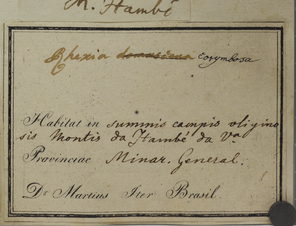 M. Itambé
Rhexia corymbosa
Habitat in summis campis uligino
sis Montis da Itambé da Va
Provinciae Minar. General.
Dr Martius Iter Brasil.